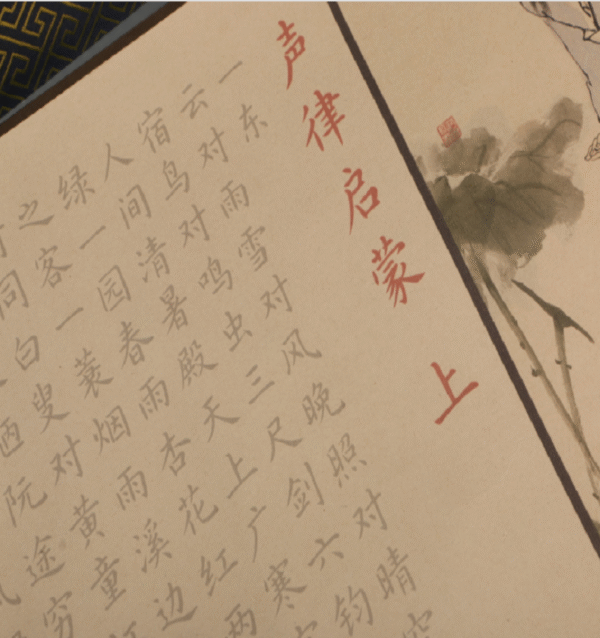 声律启蒙 上
一东
云对雨雪对风晚照对晴空
宿鸟对鸣虫三尺剑六钧
人间清暑殿天上广寒
绿一园春雨杏花红两
之客一蓑烟雨溪边
同白叟对黄童
陋阮途穷